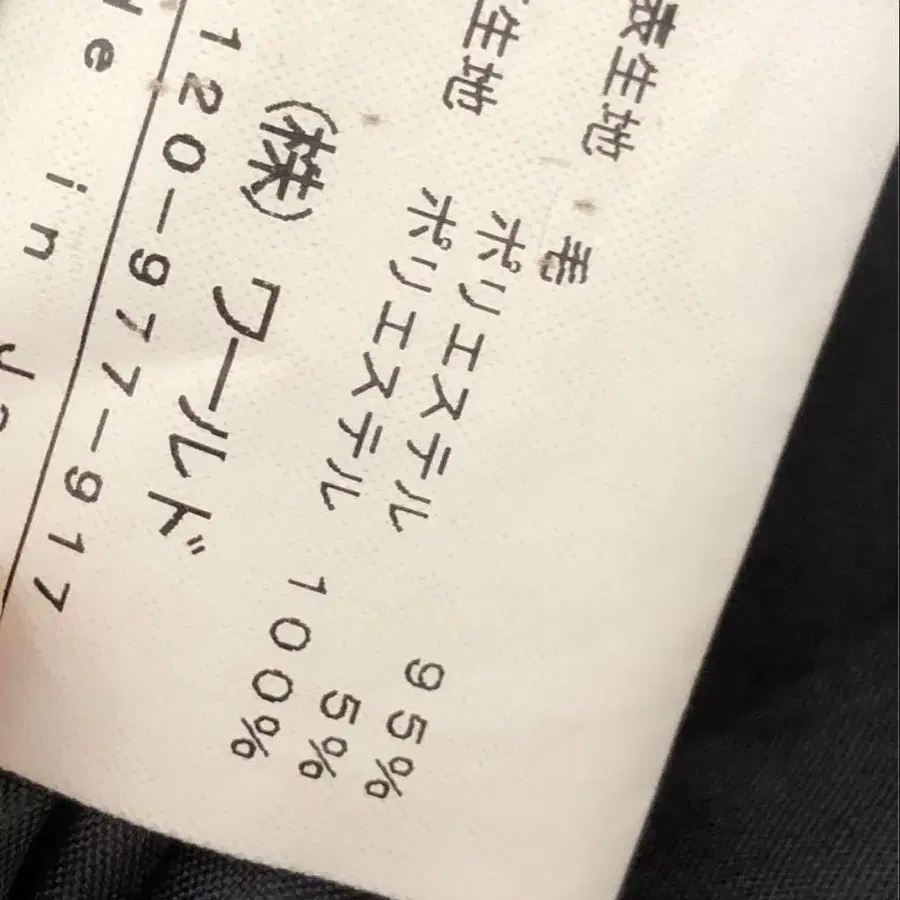 表生地 毛 95%
ポリエステル 5%
生地 ポリエステル 100%
(株) ワールド
120-977-917
de in